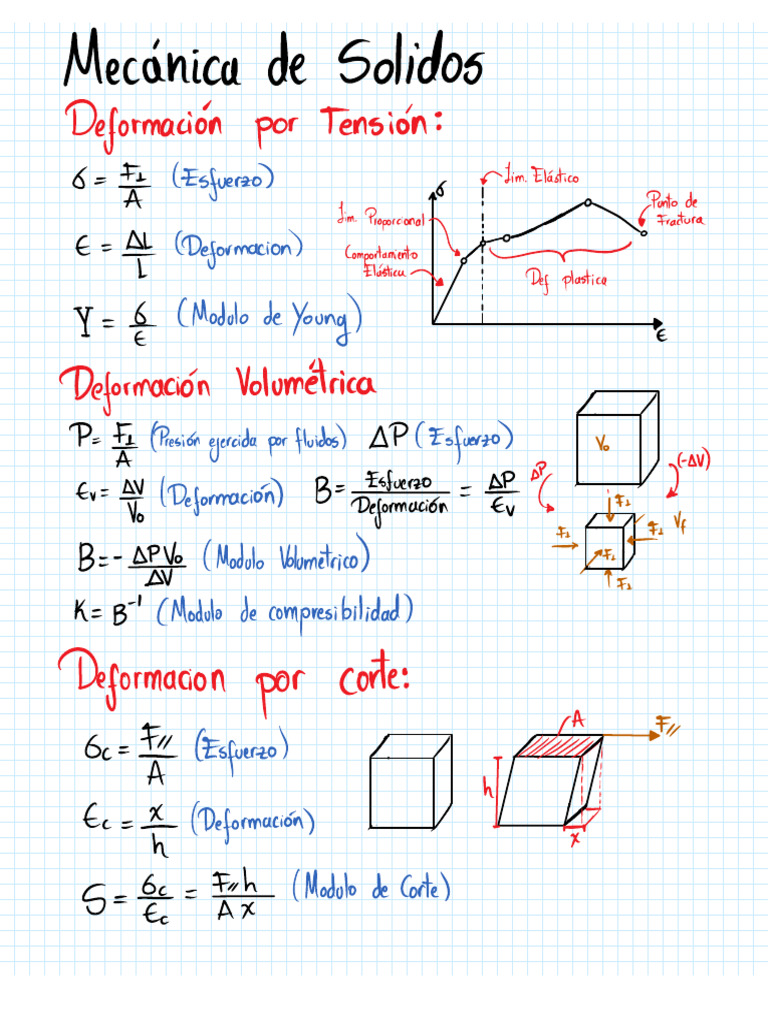 Mecánica de Solidos
Deformación por Tensión:
σ = F⊥/A (Esfuerzo)
ϵ = ΔL/L (Deformacion)
Y = σ/ϵ (Modulo de Young)
σ
Lim. Elástico
Lim. Proporcional
Punto de
Fractura
Comportamiento
Elástico
Def plastica
ϵ
Deformación Volumétrica
P = F⊥/A (Presión ejercida por fluidos) ΔP (Esfuerzo)
ϵv = ΔV/V₀ (Deformación) B = Esfuerzo/Deformación = ΔP/ϵv
B = - ΔP V₀/ΔV (Modulo Volumétrico)
K = B⁻¹ (Modulo de compresibilidad)
V₀
ΔP
(-ΔV)
F⊥
F⊥
F⊥ Vf
F⊥
F⊥
Deformacion por corte:
σc = F//​/A (Esfuerzo)
ϵc = x/h (Deformación)
S = σc/ϵc = F// h/A x (Modulo de Corte)
A
F//
h
x